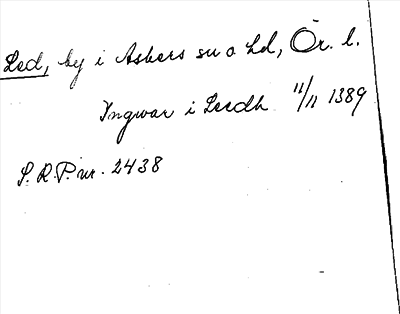 Led, by i Askers sn o hd, Ör. l.
Ingwar i Leedh 11/11 1389
S. R. P. nr. 2438